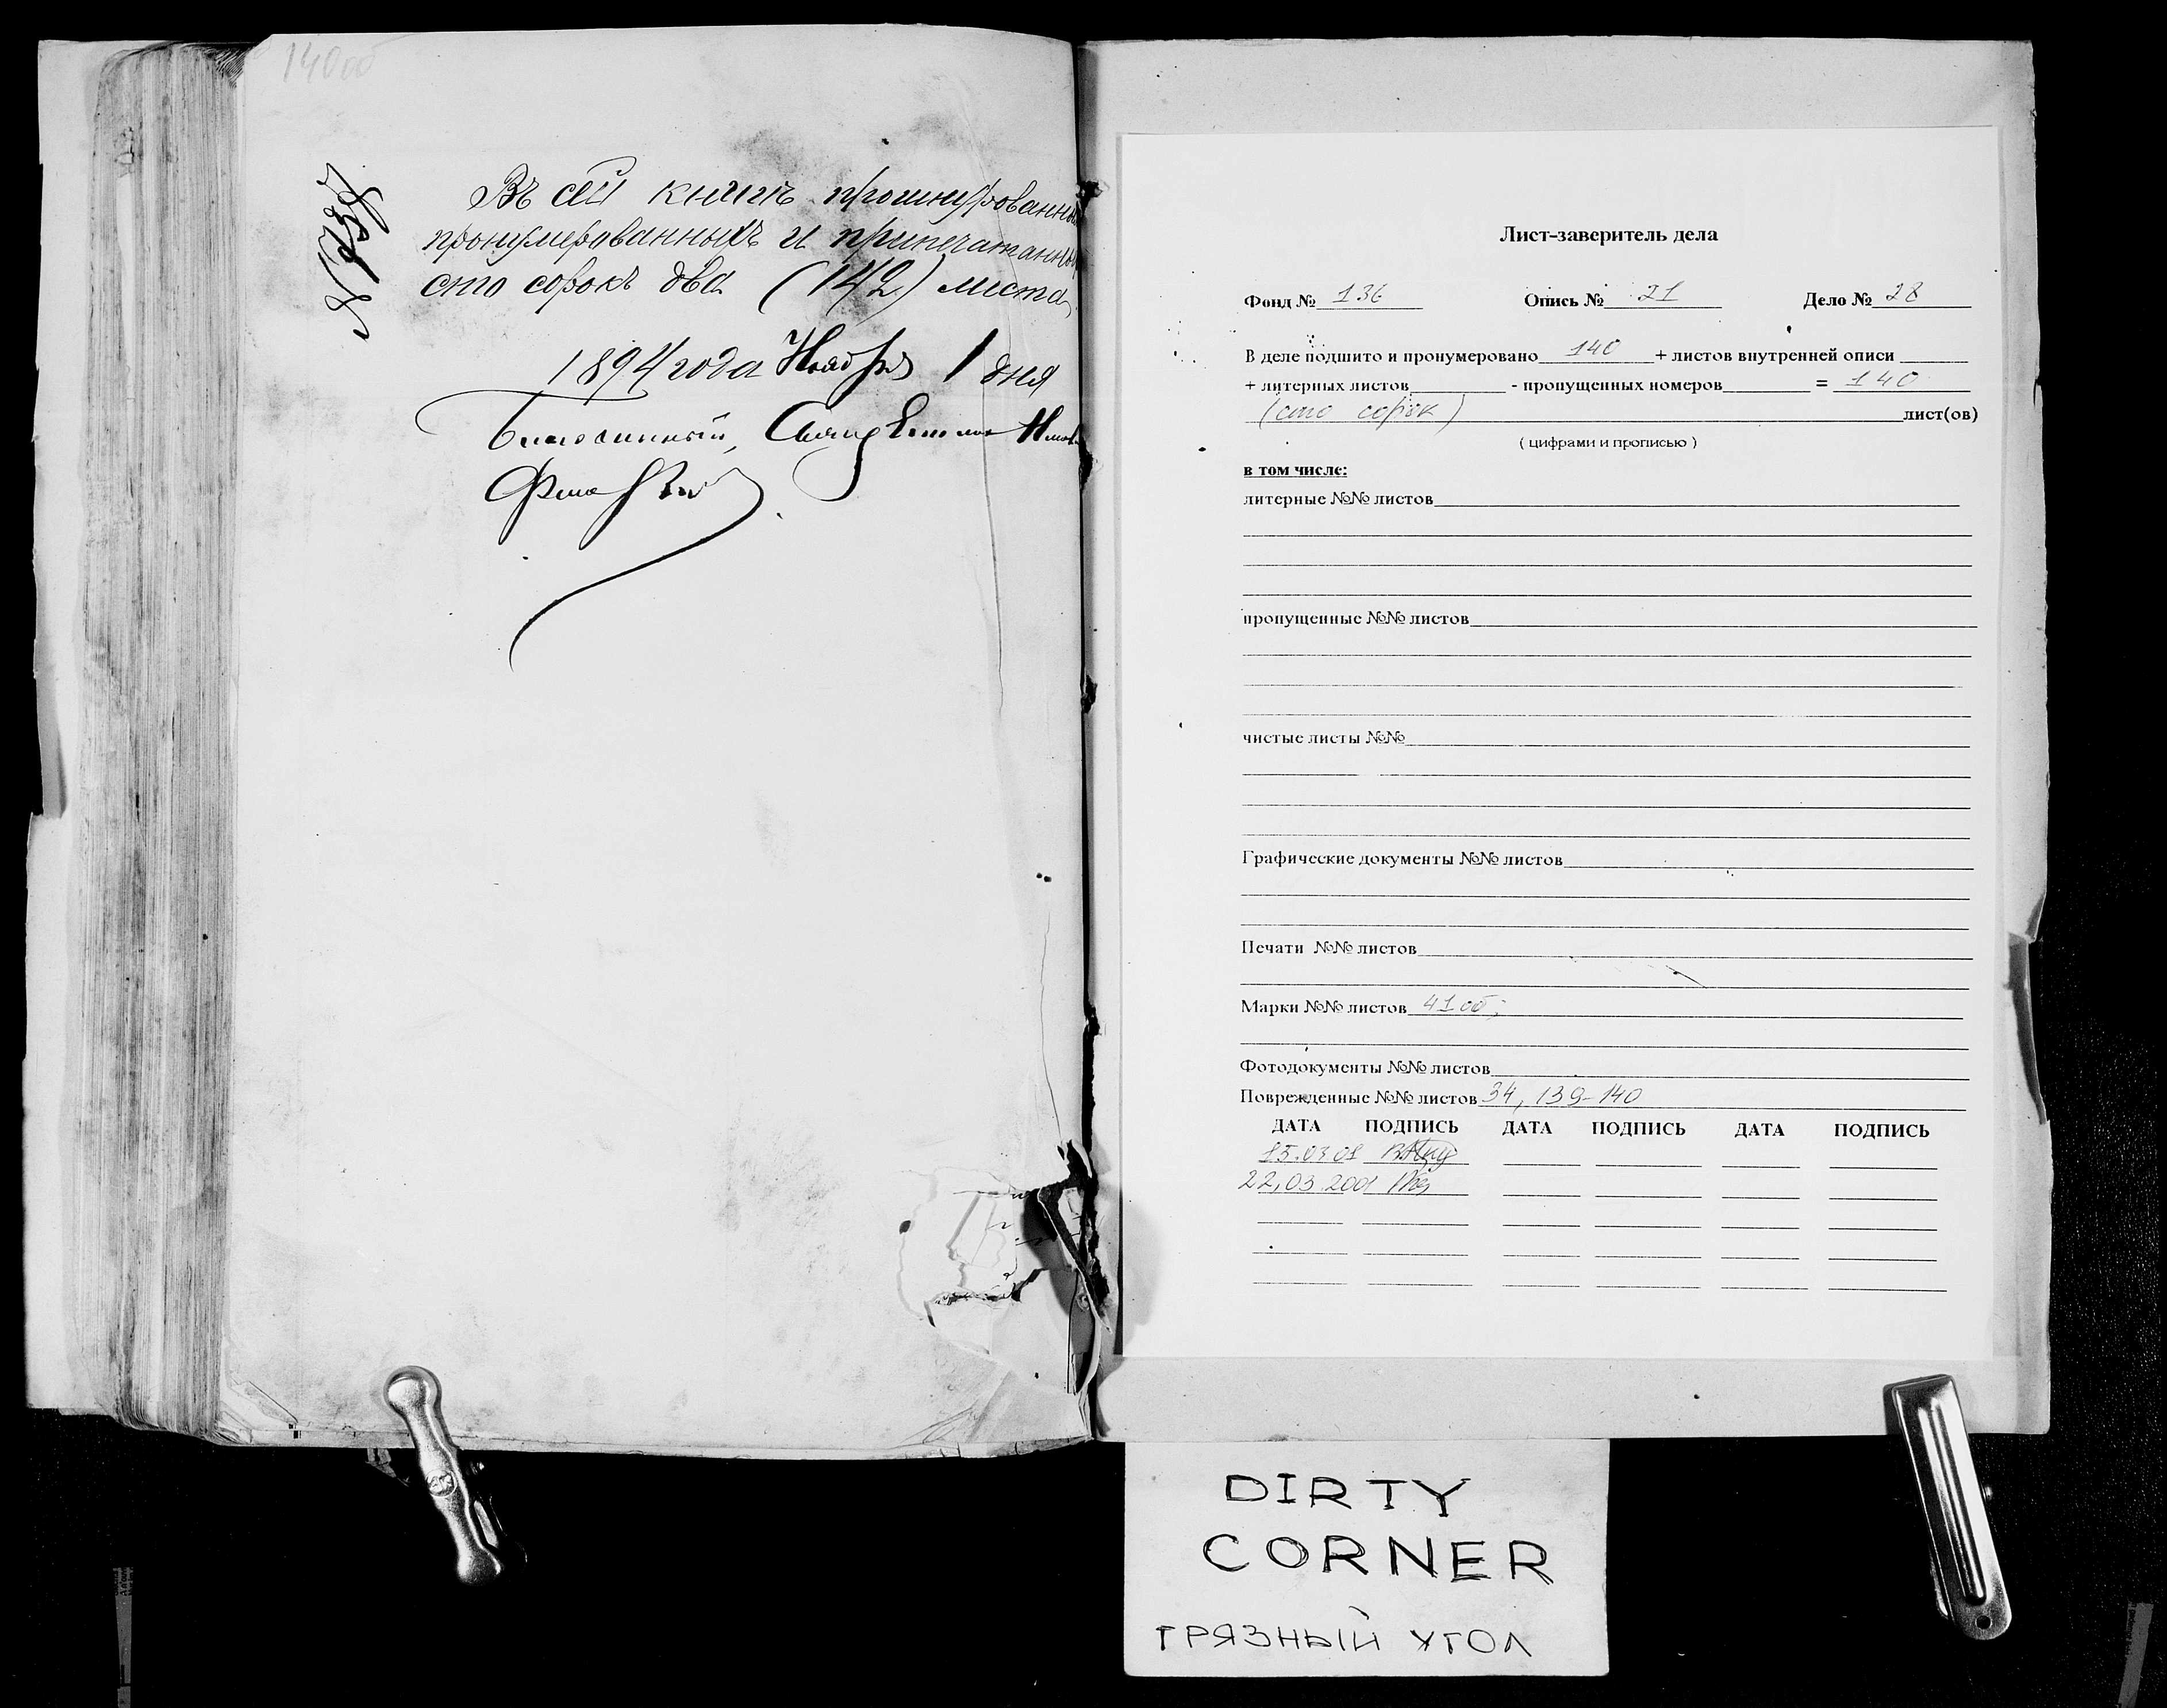 140об
Въ сей книгѣ прошнурованны
пронумерованныхъ и припечатанны
сто сорокъ два (142) листа
1894 года Ноября 1 дня
Благочинный, Священник
Лист-заверитель дела
Фонд № 136 Опись № 21 Дело № 28
В деле подшито и пронумеровано 140 + листов внутренней описи
+ литерных листов - пропущенных номеров = 140
(сто сорок) лист(ов)
( цифрами и прописью )
в том числе:
литерные №№ листов
пропущенные №№ листов
чистые листы №№
Графические документы №№ листов
Печати №№ листов
Марки №№ листов 41об;
Фотодокументы №№ листов
Поврежденные №№ листов 34, 139-140
ДАТА ПОДПИСЬ ДАТА ПОДПИСЬ ДАТА ПОДПИСЬ
15.03.01
22.03.2001
DIRTY
CORNER
ГРЯЗНЫЙ УГОЛ